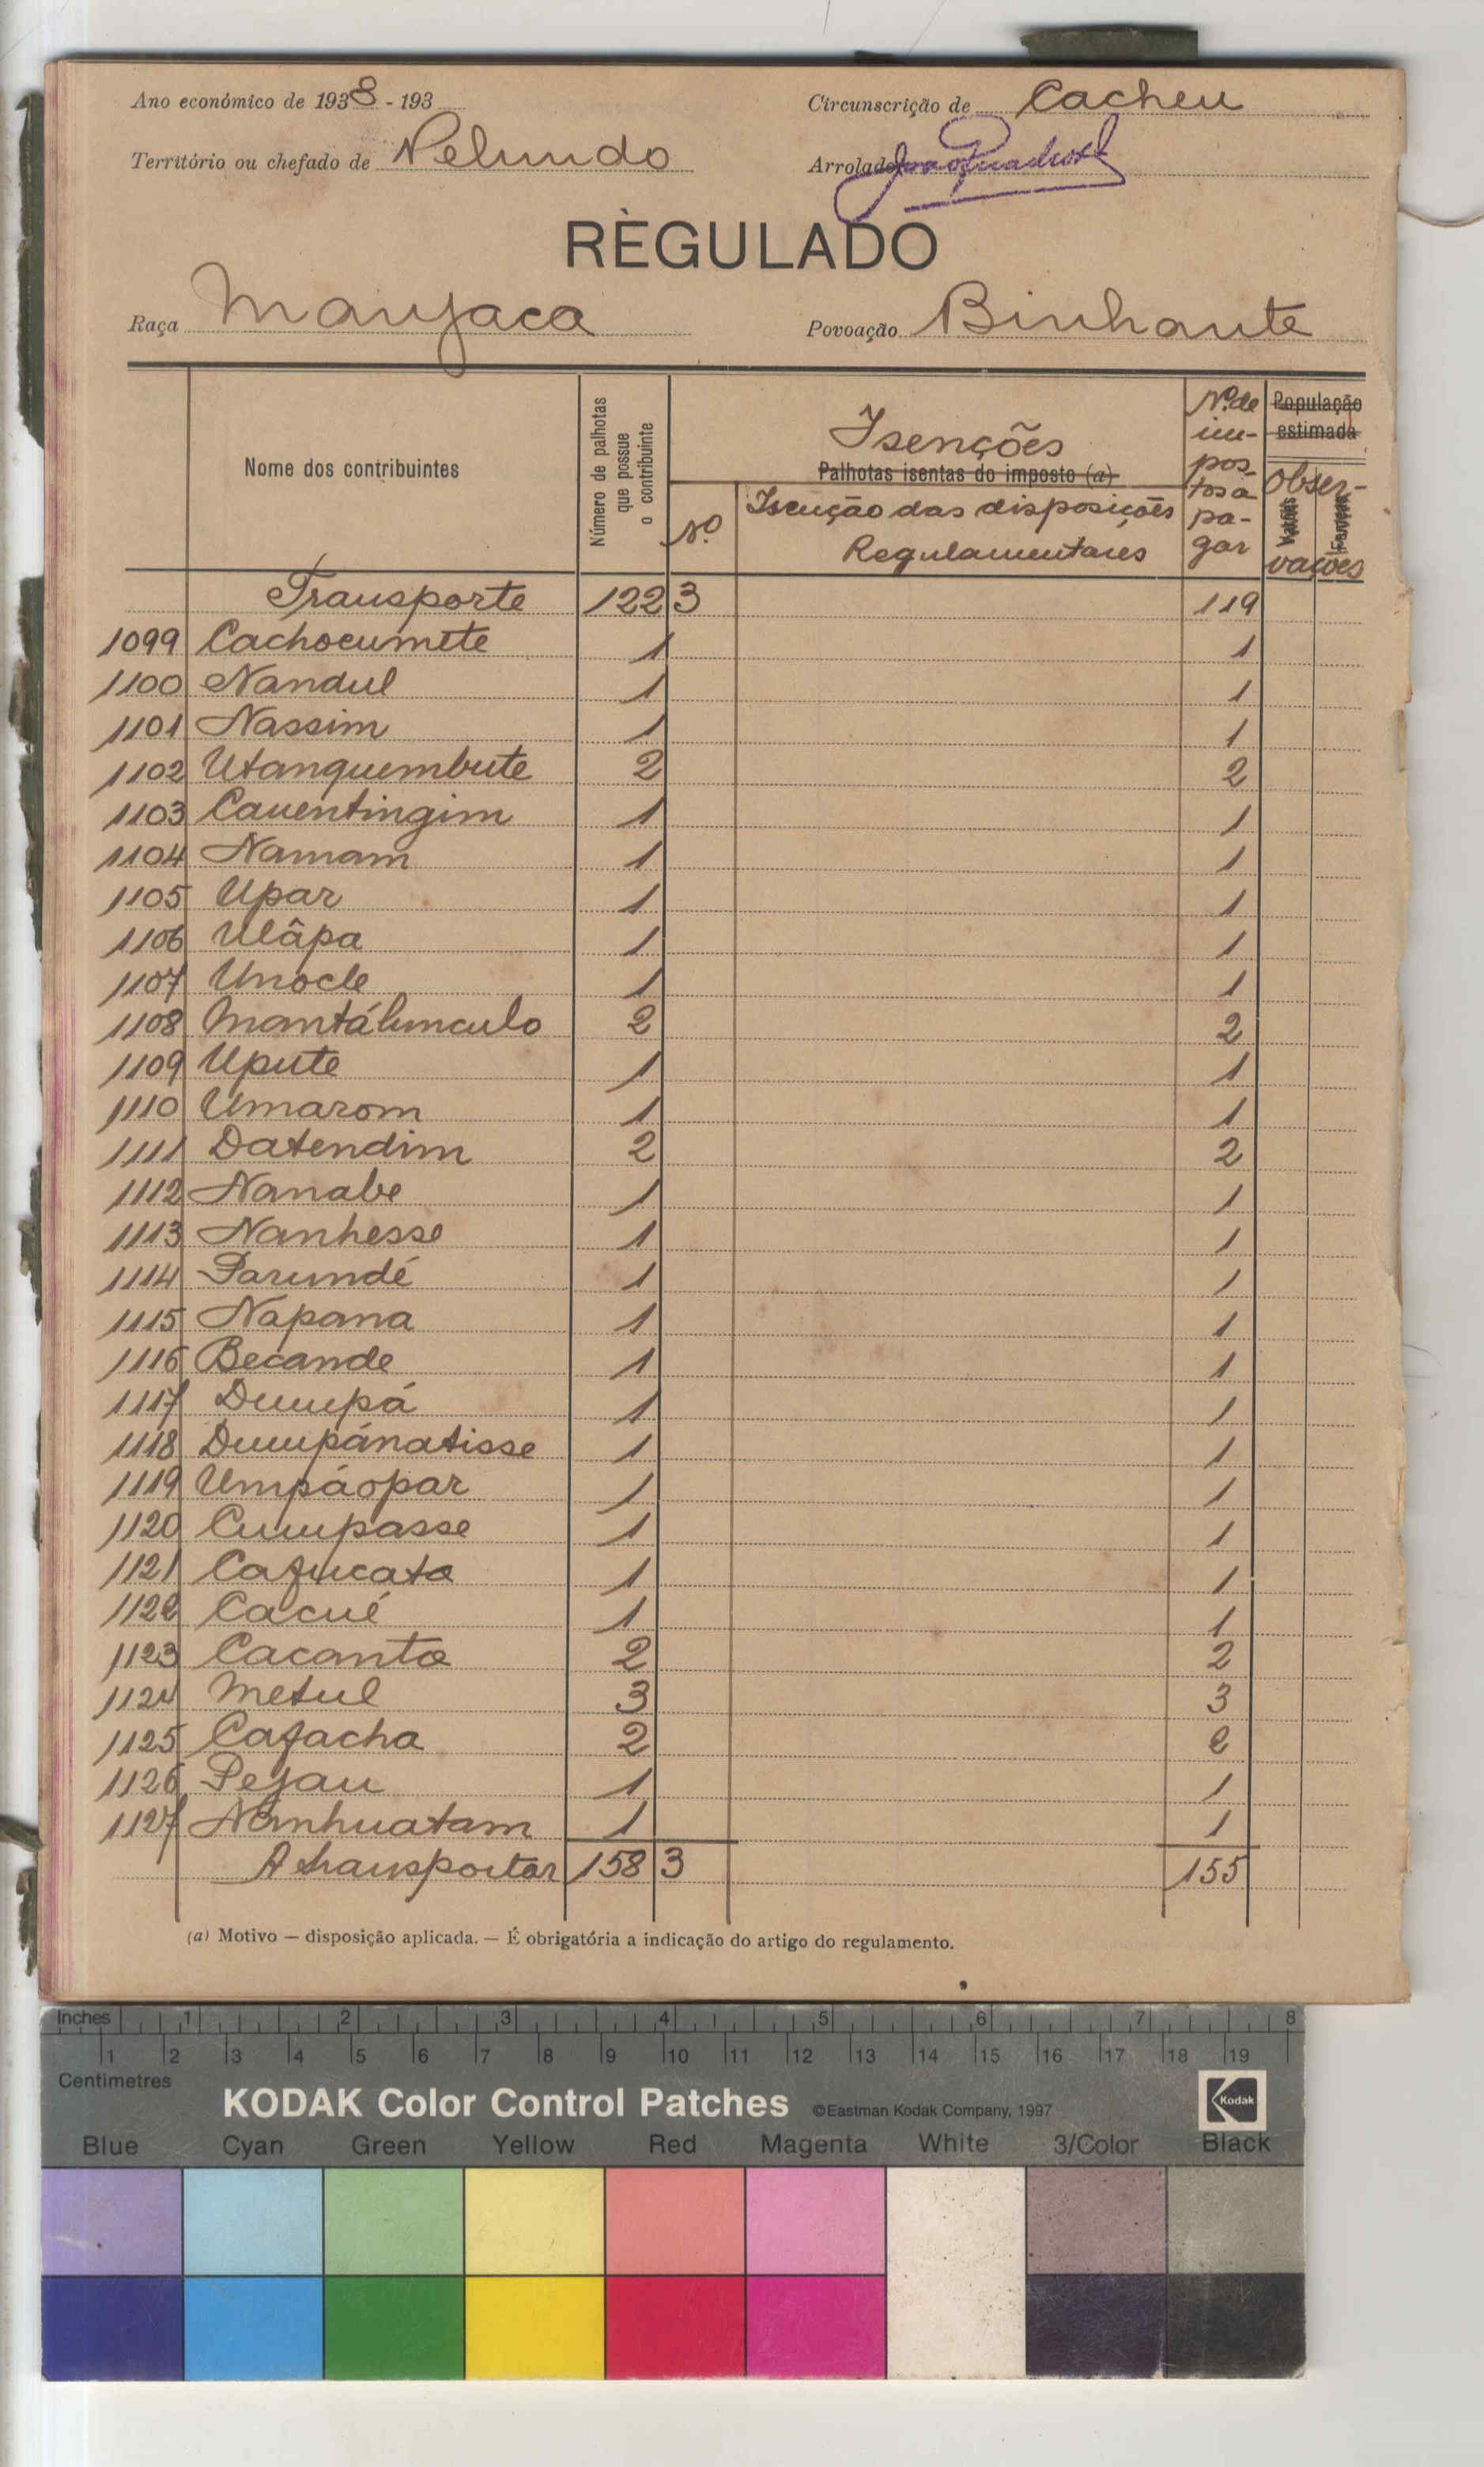 Ano económico de 1938 - 193
Circunscrição de Cacheu
Território ou chefado de Pelundo
Arrolador
RÈGULADO
Raça Manjaca
Povoação Binhante
Nome dos contribuintes
Número de palhotas que possue o contribuinte
Isenções
Palhotas isentas do imposto (a)
Nº
Isenção das disposições Regulamentares
Nº de im-postos a pa-gar
População estimada
Obser-vações
Varões
Femeas
Transporte 122 3 119
1099 Cachocumete 1 1
1100 Nandul 1 1
1101 Nassim 1 1
1102 Utanquembute 2 2
1103 Cauentingim 1 1
1104 Namam 1 1
1105 Upar 1 1
1106 Ulâpa 1 1
1107 Unocle 1 1
1108 Mantálunculo 2 2
1109 Upute 1 1
1110 Umarom 1 1
1111 Datendim 2 2
1112 Nanabe 1 1
1113 Nanhesse 1 1
1114 Parundé 1 1
1115 Napana 1 1
1116 Becande 1 1
1117 Dumpá 1 1
1118 Dumpánatisse 1 1
1119 Umpáopar 1 1
1120 Cumpasse 1 1
1121 Cafucata 1 1
1122 Cacué 1 1
1123 Cacanta 2 2
1124 Metul 3 3
1125 Cafacha 2 2
1126 Pejau 1 1
1127 Nanhuatam 1 1
A transportar 158 3 155
(a) Motivo — disposição aplicada. — É obrigatória a indicação do artigo do regulamento.
Inches 1 2 3 4 5 6 7 8
1 2 3 4 5 6 7 8 9 10 11 12 13 14 15 16 17 18 19
Centimetres
KODAK Color Control Patches ©Eastman Kodak Company, 1997 Kodak
Blue Cyan Green Yellow Red Magenta White 3/Color Black